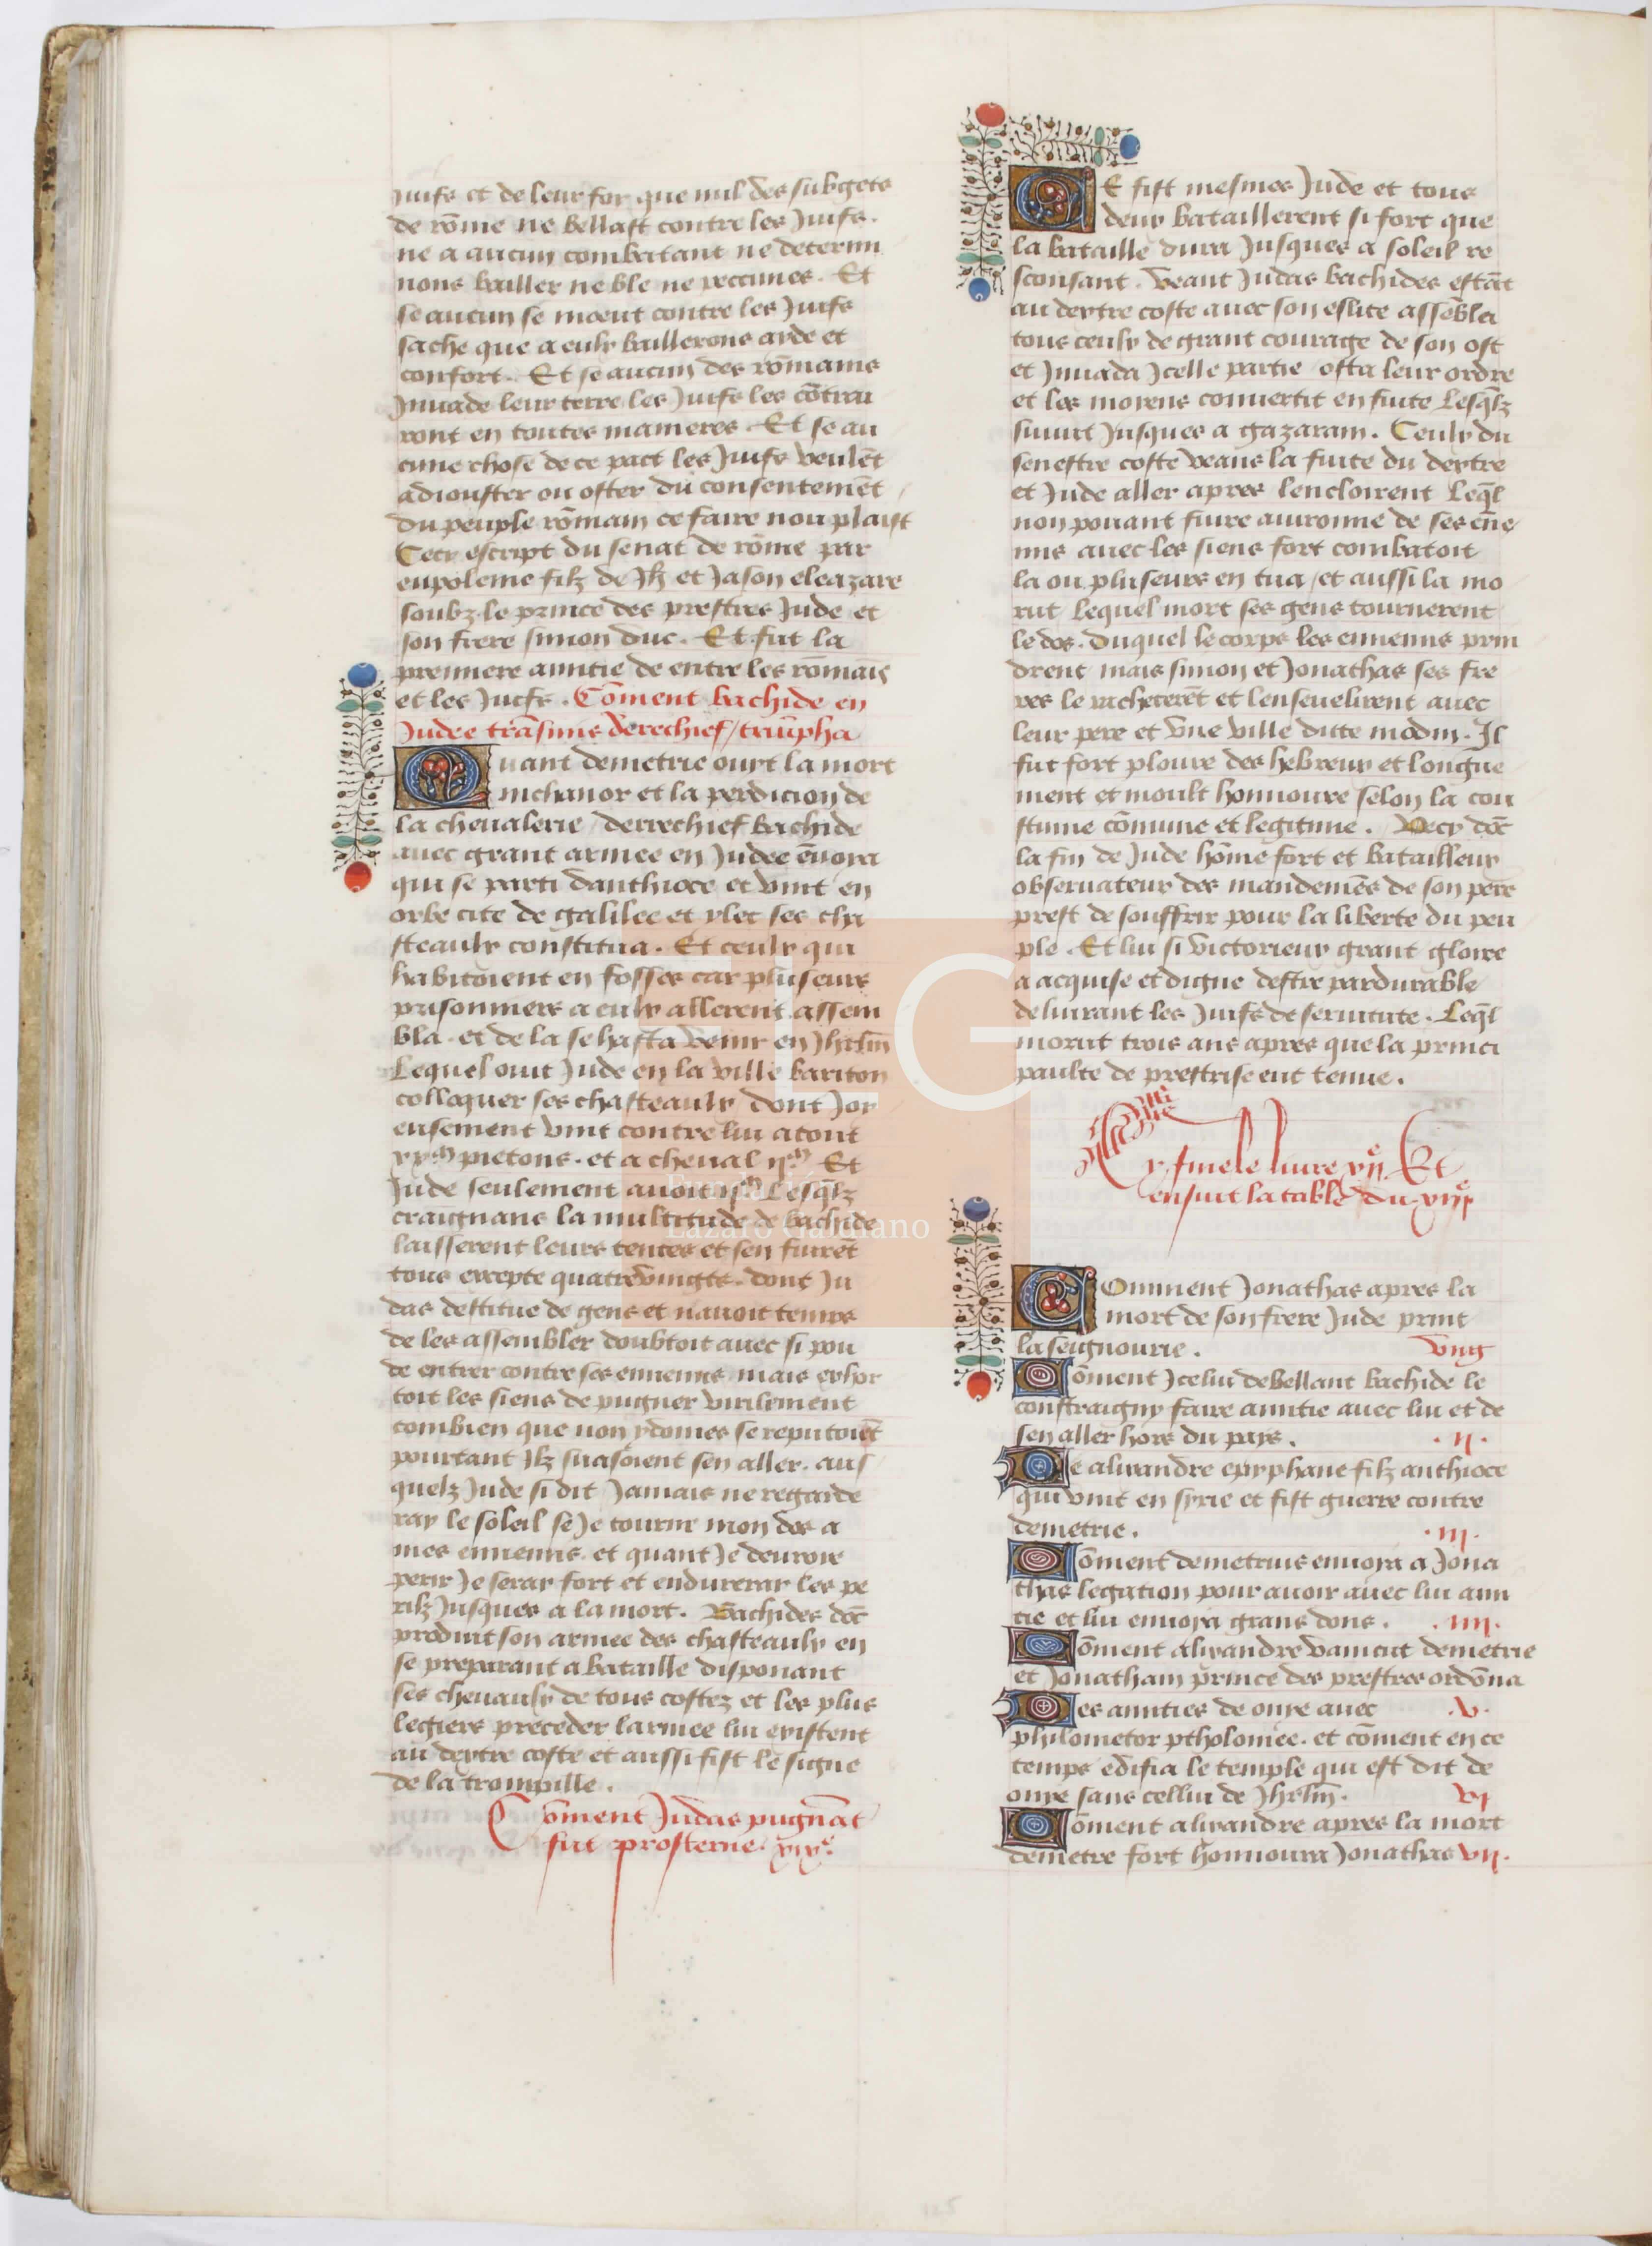 Juifs et de leur for que nul des subgets
de rõme ne bellast contre les Juifs.
ne a aucun combatant ne determi
nons bailler ne ble ne pecunes. Et
se aucun se moeut contre les Juifs
sache que a eulx baillerons ayde et
confort. Et se aucun des rõmains
Inuade leur terre les Juifs les cõtrai
ront en toutes manieres. Et se au
cune chose de ce pact les Juifs veulẽt
adiouster ou oster du consentemẽt
du peuple rõmain ce faire nou plaist
Cecy escript du senat de rõme par
eupoleme filz de Jh̃ et Jason eleazare
soubz le prince des prestres Jude et
son frere simon duc. Et fut la
premiere amitie de entre les rõmaĩs
et les Juifs. Cõment bachide en
Judee trãsmis derechief / triũpha
Quant demetrie ouyt la mort
nichanor et la perdicion de
la cheualerie / derrechief bachide
auec grant armee en Judee ẽuoya
qui se parti danthioce et vint en
orbe cite de galilee et ylec ses cha
steaulx constitua. Et ceulx qui
habitoient en fosses car pluseurs
prisonniers a eulx allerent assem
bla. et de la se hasta venir en Jhrlm̃
Lequel ouit Jude en la ville bariton
colloquer ses chasteaulx dont Joy
eusement vint contre lui atout
xxᵐ pietons. et a cheual ijᵐ Et
Jude seulement auoit ijᵐ Lesq̃lz
craignans la multitude de bachide
laisserent leurs tentes et sen fuirẽt
tous excepte quatrevingts. dont Ju
das destitue de gens et nauoit temps
de les assembler doubtoit auec si pou
de entrer contre ses ennemis mais exhor
toit les siens de pugner virilement
combien que non ydomes se reputoiẽt
pourtant Ilz suasoient sen aller. aus
quelz Jude si dit Jamais ne regarde
ray le soleil se Je tourne mon dos a
mes ennemis. et quant Je deuroie
perir Je seray fort et endureray les pe
rilz Jusques a la mort. Bachides dõc
produit son armee des chasteaulx en
se preparant a bataille disponant
ses cheuaulx de tous costez et les plus
legiers preceder larmee lui existent
au dextre coste et aussi fist le signe
de la trompille.
Cõment Judas pugnãt
fut prosterne. xixᵉ.
CE fist mesmes Jude et tous
deux bataillerent si fort que
la bataille dura Jusques a soleil re
sconsant. Veant Judas bachides estãt
au dextre coste auec son eslite assẽbla
tous ceulx de grant courage de son ost
et Inuada Icelle partie osta leur ordre
et les moyens conuertit en fuite Lesq̃lz
suiuit Jusques a gazaram. Ceulx du
senestre coste veans la fuite du dextre
et Jude aller apres lencloirent Leq̃l
non pouant fuire auironne de ses ẽne
mis auec les siens fort combatoit
la ou pluseurs en tua / et aussi la mo
rut lequel mort ses gens tournerent
le dos. Duquel le corps les ennemis prin
drent mais simon et Jonathas ses fre
res le racheterẽt et lenseuelirent auec
leur pere et vne ville ditte modin. Il
fut fort ploure des hebreux et longue
ment et moult honnoure selon la cou
stume cõmune et legitime. Vecy dõc
la fin de Jude hõme fort et batailleux
obseruateur des mandemẽs de son pere
prest de souffrir pour la liberte du peu
ple. Et lui si victorieux grant gloire
a acquise et digne destre pardurable
deliurant les Juifs de seruitute. Leq̃l
morut trois ans apres que la princi
paulte de prestrise eut tenue.
Cy fine le liure xijᵉ. Et
ensuit la table du xiijᵉ
Comment Jonathas apres la
mort de son frere Jude print
la seignourie. vng
Cõment Icelui debellant bachide le
constraigny faire amitie auec lui et de
sen aller hors du pays. .ij.
De alixandre epyphane filz anthioce
qui vint en syrie et fist guerre contre
demetrie. .iij.
Cõment demetrius enuoya a Jona
thas legation pour auoir auec lui ami
tie et lui enuoya grans dons. .iiij.
Cõment alixandre vainciit demetrie
et Jonatham prince des prestres ordõna
Des amities de onye auec .v.
philometor ptholomee. et cõment en ce
temps edifia le temple qui est dit de
onye sans cellui de Jhrlm̃. vj
Cõment alixandre apres la mort
demetre fort honnoura Jonathas vij.
Fundación
Lázaro Galdiano